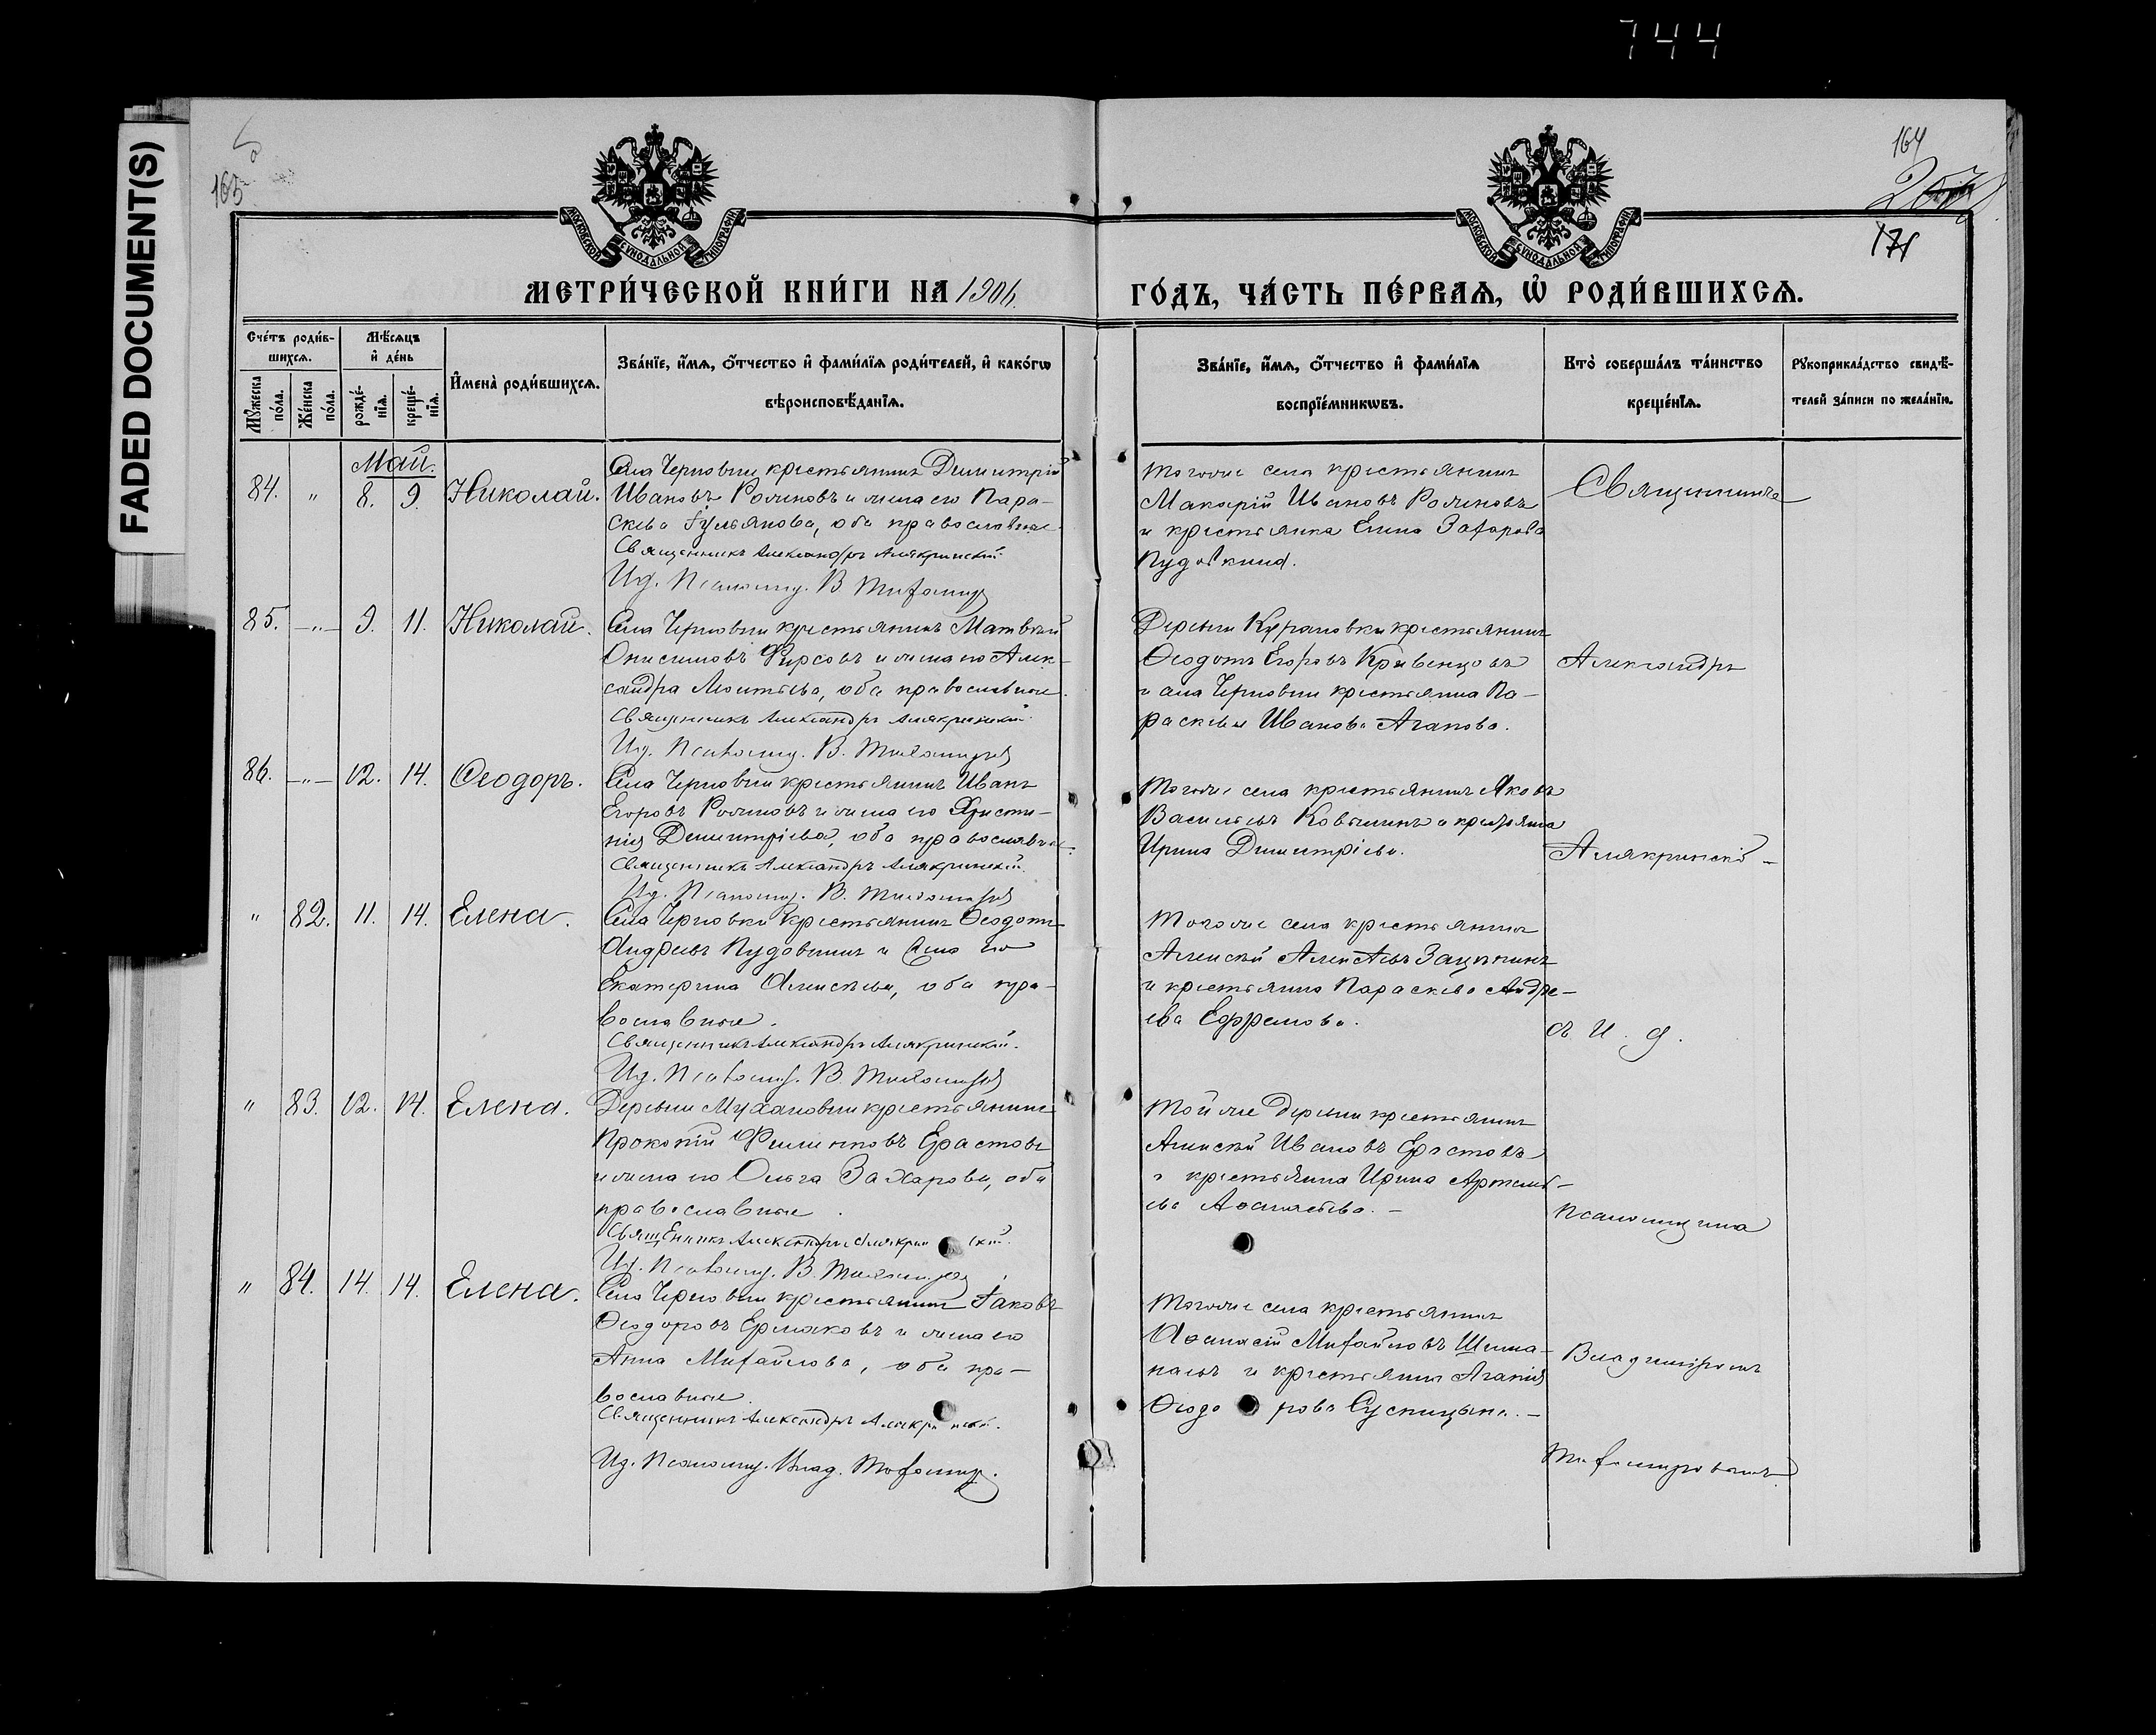 744
FADED DOCUMENT(S)
163
164
171
МОСКОВСКОЙ СУНОДАЛЬНОЙ ТИПОГРАФІИ
МОСКОВСКОЙ СУНОДАЛЬНОЙ ТИПОГРАФІИ
МЕТРИ́ЧЕСКОЙ КНИ́ГИ НА 1906. ГО́ДЪ, ЧА́СТЬ ПЕ́РВАѦ, Ѡ҆ РОДИ́ВШИХСѦ.
Сче́тъ роди́в-
шихсѧ.
Мꙋ́жеска по́ла.
Же́нска по́ла.
Мѣ́сѧцъ
и҆ де́нь
рожде́-
нїѧ.
креще́-
нїѧ.
И҆мена̀ роди́вшихсѧ.
Зва́нїе, и҆́мѧ, ѻ҆́тчество и҆ фами́лїѧ роди́телей, и҆ како́гѡ
вѣроисповѣ́данїѧ.
Зва́нїе, и҆́мѧ, ѻ҆́тчество и҆ фами́лїѧ
воспрїе́мникѡвъ.
Кто̀ соверша́лъ та́инство
креще́нїѧ.
Рꙋкоприкла́дство свидѣ́-
телей за́писи по жела́нїю.
Май.
84. " 8. 9. Николай.
Села Черновки крестьянинъ Димитрій
Ивановъ Роминовъ и жена его Пара-
скева Гульянова, оба православные
Священникъ Александръ Алякринскій.
Ид. Псаломщ. В. Тихомир
Тогоже села крестьянинъ
Макарій Ивановъ Роминовъ
и крестьянка Елена Захарова
Пудовкина.
85. -"- 9. 11. Николай.
Села Черновки крестьянинъ Матвѣй
Онисимовъ Фирсовъ и жена его Алек-
сандра Леонтьева, оба православные.
Священникъ Александръ Алякринскій.
Ид. Псаломщ. В. Тихомировъ
Деревни крестьянинъ
Ѳеодотъ Егоровъ Кривенцовъ
и села Черновки крестьянка Па-
раскева Иванова Агапова.
86. -"- 12. 14. Ѳеодоръ.
Села Черновки крестьянинъ Иванъ
Егоровъ Роминовъ и жена его Христи-
нія Димитріева, оба православные.
Священникъ Александръ Алякринскій.
Ид. Псаломщ. В. Тихомировъ
Тогоже села крестьянинъ Яковъ
Васильевъ и крестьянка
Ирина Димитріева.
" 82. 11. 14. Елена.
Села Черновки крестьянинъ Ѳеодотъ
Андреевъ Пудовкинъ и жена его
Екатерина Алексѣева, оба пра-
вославные.
Священникъ Александръ Алякринскій.
Ид. Псаломщ. В. Тихомировъ
Тогоже села крестьянинъ
Алексѣй Алексѣевъ Зацепинъ
и крестьянка Параскева Андре-
ева Ефремова.
" 83. 12. 14. Елена.
Деревни Мухановки крестьянинъ
Прокопій Филипповъ Ерастовъ
и жена его Ольга Захарова, оба
православные.
Священникъ Александръ Алякринскій.
Ид. Псаломщ. В. Тихомировъ
Тойже деревни крестьянинъ
Алексѣй Ивановъ Ерастовъ
и крестьянка Ирина Артемь-
ева Аѳанасьева. -
" 84. 14. 14. Елена.
Села Черновки крестьянинъ Іаковъ
Ѳеодоровъ Ермаковъ и жена его
Анна Михайлова, оба пра-
вославные.
Священникъ Александръ Алякринскій.
Ид. Псаломщ. Влад. Тихомир.
Тогоже села крестьянинъ
Аѳанасій Михайловъ
и крестьянка Агапія
Ѳеодорова Сускицына. -
Священникъ
Александръ
Алякринскій -
съ И. д.
псаломщика
Владиміромъ
Тихомировымъ.